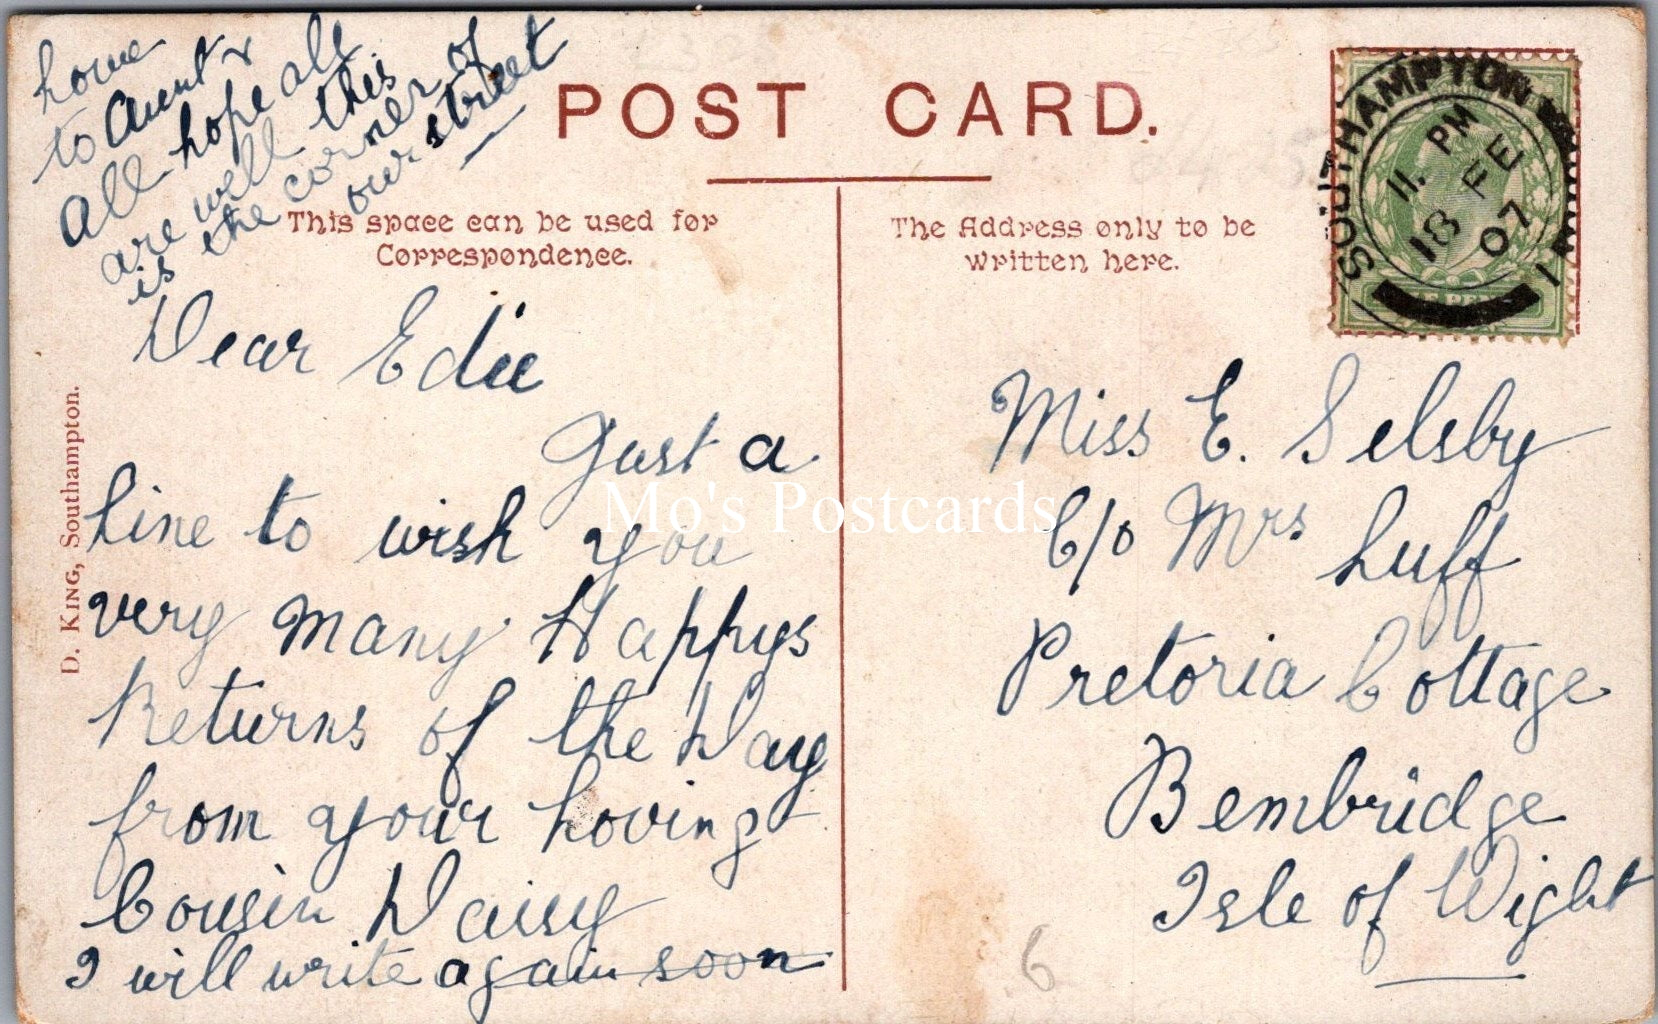 home
to Aunt &
All hope all
are well this
is the corner of
our street
POST CARD.
This space can be used for
Correspondence.
The Address only to be
written here.
SOUTHAMPTON
11. PM
18 FE
07
D. KING, Southampton.
Dear Edie
Just a
line to wish you
very many Happys
Returns of the Day
from your Loving
Cousin Daisy
I will write again soon
Miss E. Selsby
C/o Mrs Luff
Pretoria Cottage
Bembridge
Isle of Wight
Mo's Postcards
6